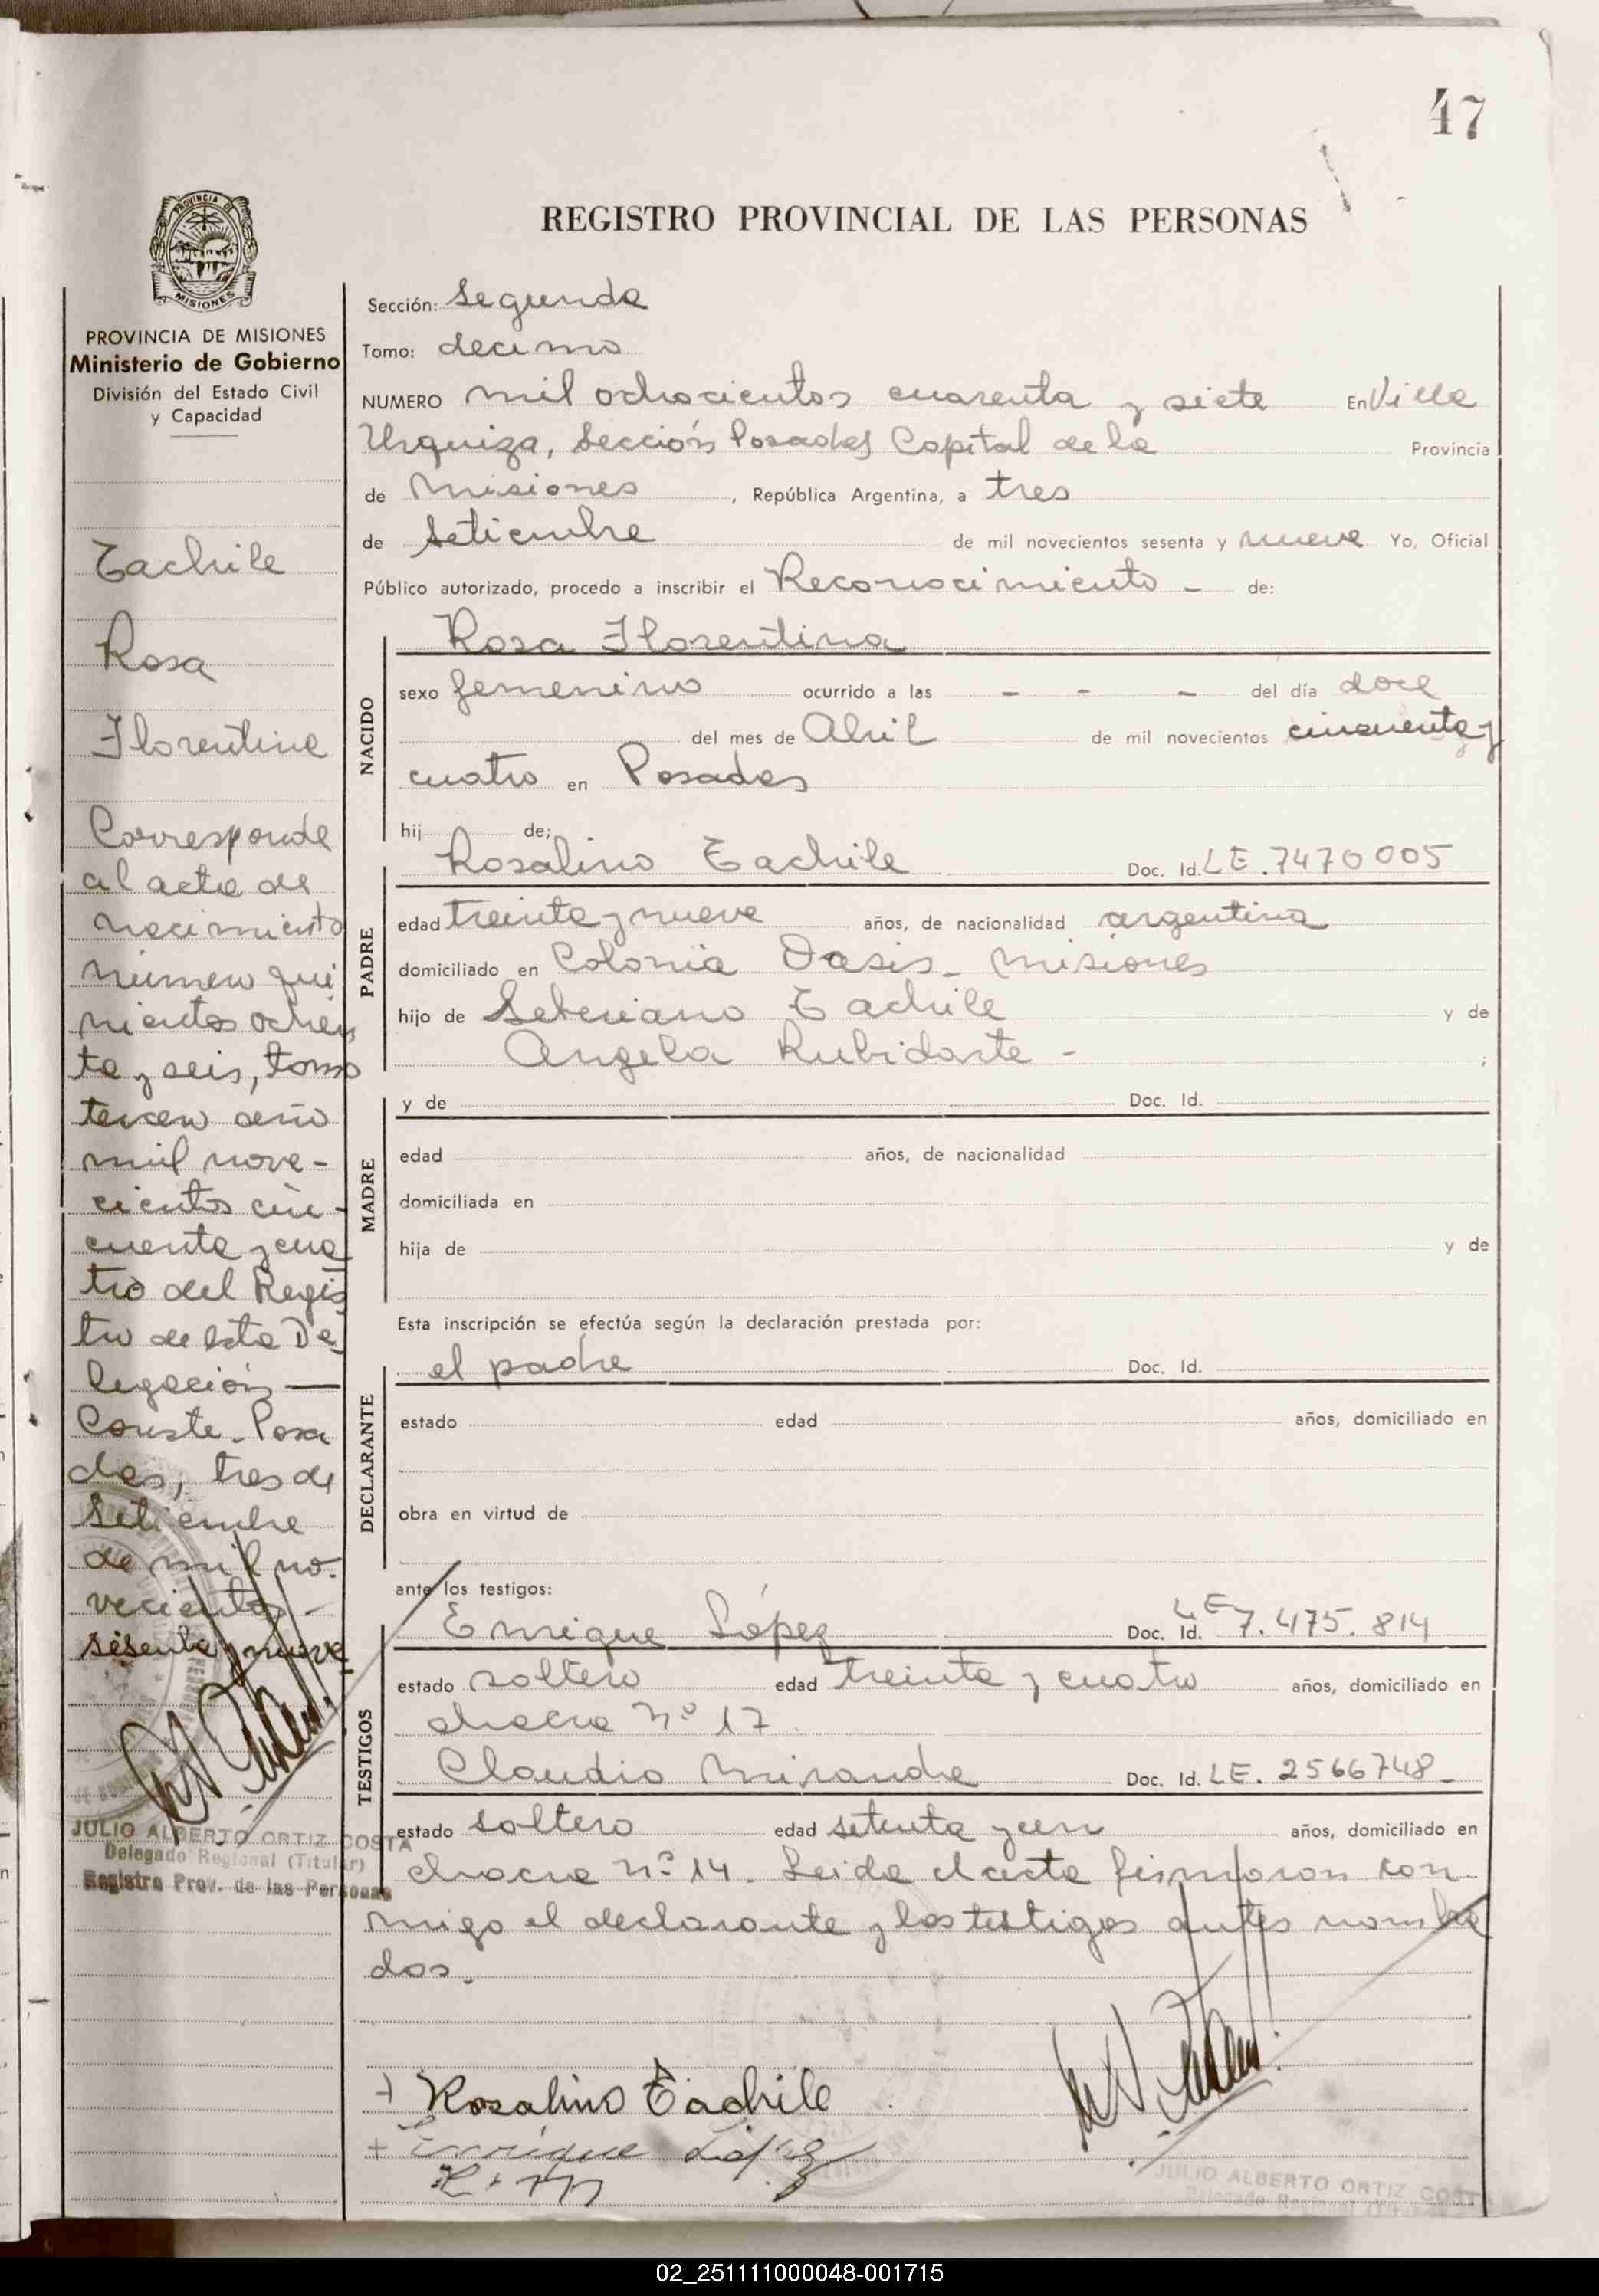 47
REGISTRO PROVINCIAL DE LAS PERSONAS
PROVINCIA DE MISIONES
Ministerio de Gobierno
División del Estado Civil
y Capacidad
Tachile
Rosa
Florentina
Corresponde
al acta de
nacimiento
número qui
nientos ochen
ta y seis, tomo
tercero año
mil nove-
cientos cin-
cuenta y cua
tro del Regis
tro de esta De
legación —
Conste. Posa
das, tres de
Setiembre
de mil no-
vecientos -
sesenta y nueve
JULIO ALBERTO ORTIZ COSTA
Delegado Regional (Titular)
Registro Prov. de las Personas
Sección: Segunda
Tomo: decimo
NUMERO mil ochocientos cuarenta y siete En Villa
Urquiza, Sección Posadas Capital de la Provincia
de Misiones, República Argentina, a tres
de Setiembre de mil novecientos sesenta y nueve Yo, Oficial
Público autorizado, procedo a inscribir el Reconocimiento - de:
NACIDO
Rosa Florentina
sexo femenino ocurrido a las - - - del día doce
del mes de Abril de mil novecientos cincuenta y
cuatro en Posadas
hij de;
PADRE
Rosalino Tachile Doc. Id. LE.7470005
edad treinta y nueve años, de nacionalidad argentina
domiciliado en Colonia Oasis - Misiones
hijo de Seberiano Tachile y de
Angela Rubidarte - ;
MADRE
y de Doc. Id.
edad años, de nacionalidad
domiciliada en
hija de y de
Esta inscripción se efectúa según la declaración prestada por:
DECLARANTE
el padre Doc. Id.
estado edad años, domiciliado en
obra en virtud de
ante los testigos:
TESTIGOS
Enrique López Doc. Id. LE 7.475.814
estado soltero edad treinta y cuatro años, domiciliado en
chacra nº 17.
Claudio Miranda Doc. Id. LE. 2566748
estado soltero edad setenta y un años, domiciliado en
chacra nº 14. Leida el acta firmaron con-
migo el declarante y los testigos antes nombra
dos.
Rosalino Tachile
Enrique López
JULIO ALBERTO ORTIZ COST
02_251111000048-001715